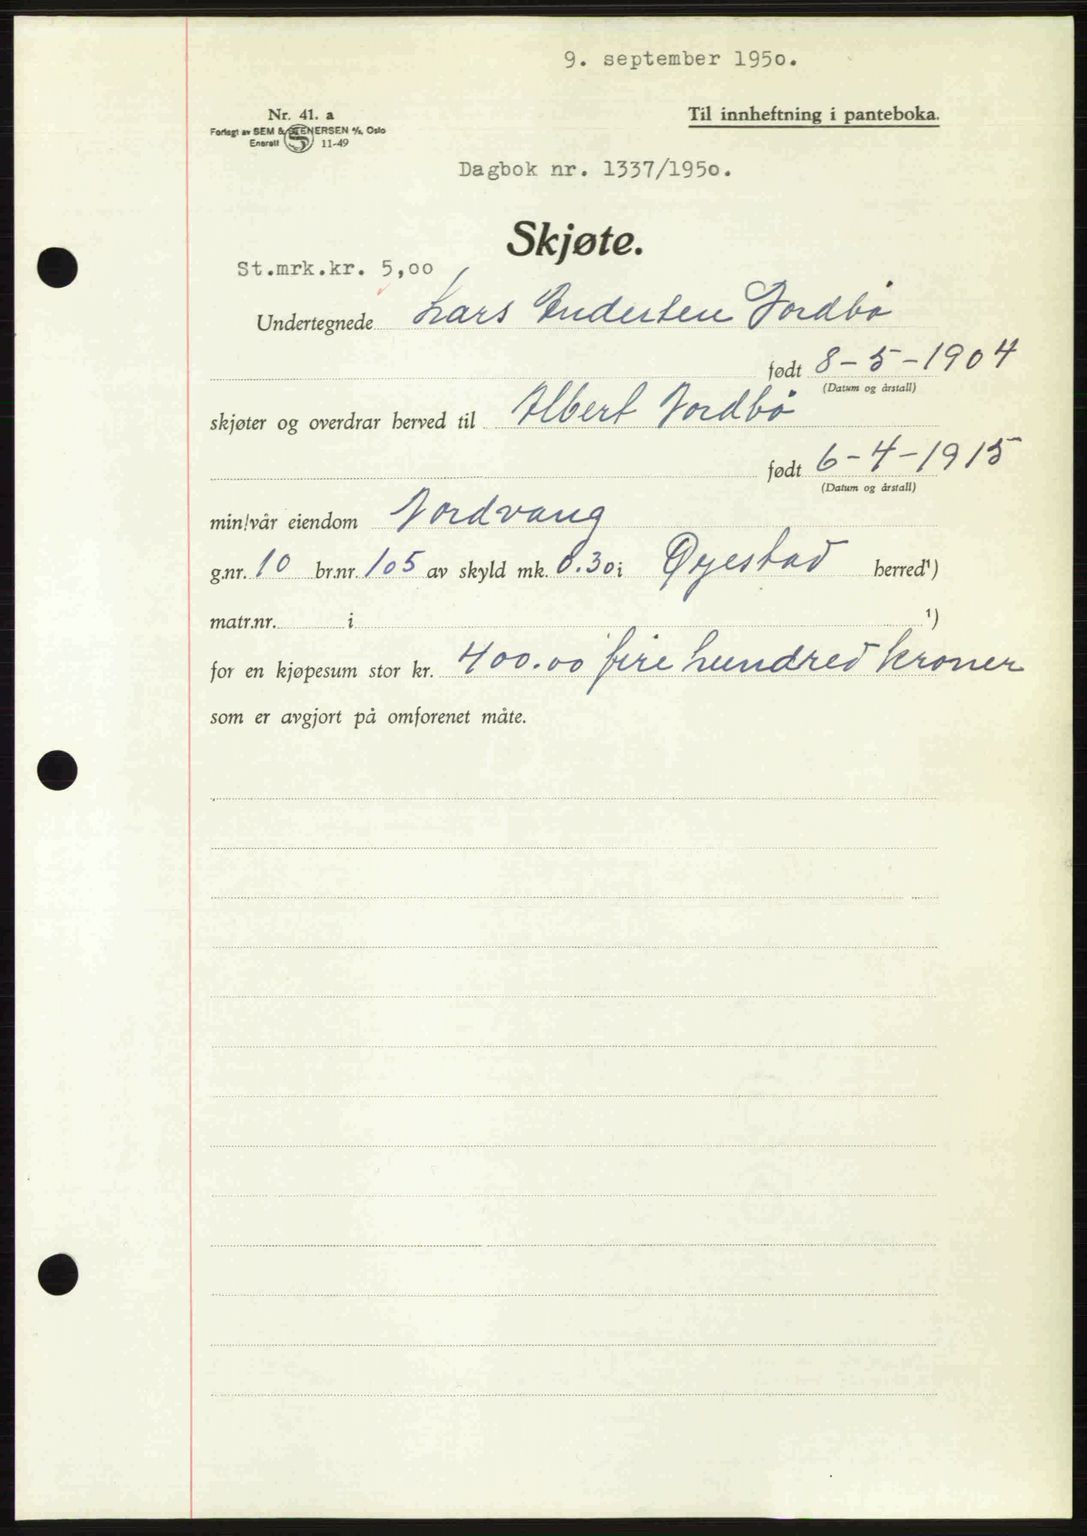 9. september 1950.
Nr. 41. a
Til innheftning i panteboka.
Forlagt av SEM & STENERSEN A/S, Oslo
Enerett 11-49
Dagbok nr. 1337/1950.
Skjøte.
St.mrk.kr. 5,00
Undertegnede Lars Endersen Nordbø
født 8-5-1904
(Datum og årstall)
skjøter og overdrar herved til Albert Nordbø
født 6-4-1915
(Datum og årstall)
min/vår eiendom Nordvang
g.nr. 10 br.nr. 105 av skyld mk. 0.30 i Øyestad herred¹)
matr.nr. i ¹)
for en kjøpesum stor kr. 400.00 fire hundred kroner
som er avgjort på omforenet måte.